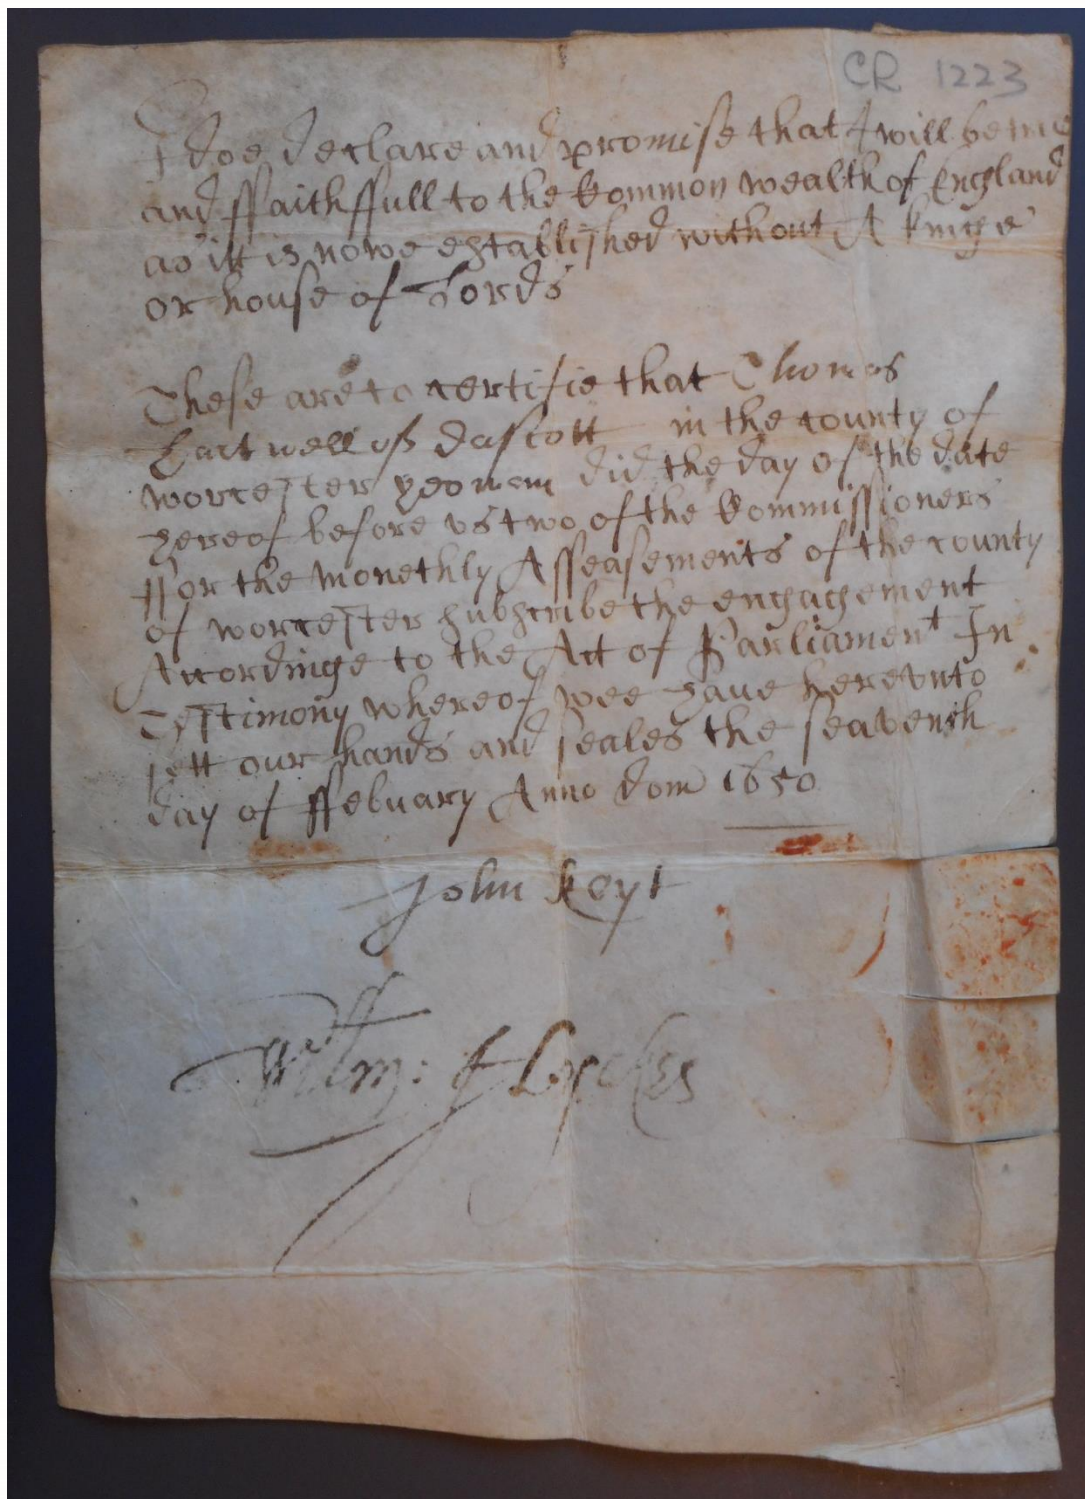 CR 1223
I doe declare and promise that I will be true
and ffaithffull to the Common wealth of England
as itt is nowe established without A kinge
or house of Lords
These are to certifie that Thomas
of dascott in the county of
worcester yeoman did the day of the date
hereof before us two of the Commissioners
ffor the monethly Asseasements of the county
of worcester subscribe the engagement
Accordinge to the Act of Parliament In
Testimony whereof wee have herevnto
sett our hands and seales the seaventh
day of ffebuary Anno dom 1650
John Keyt
Willm: